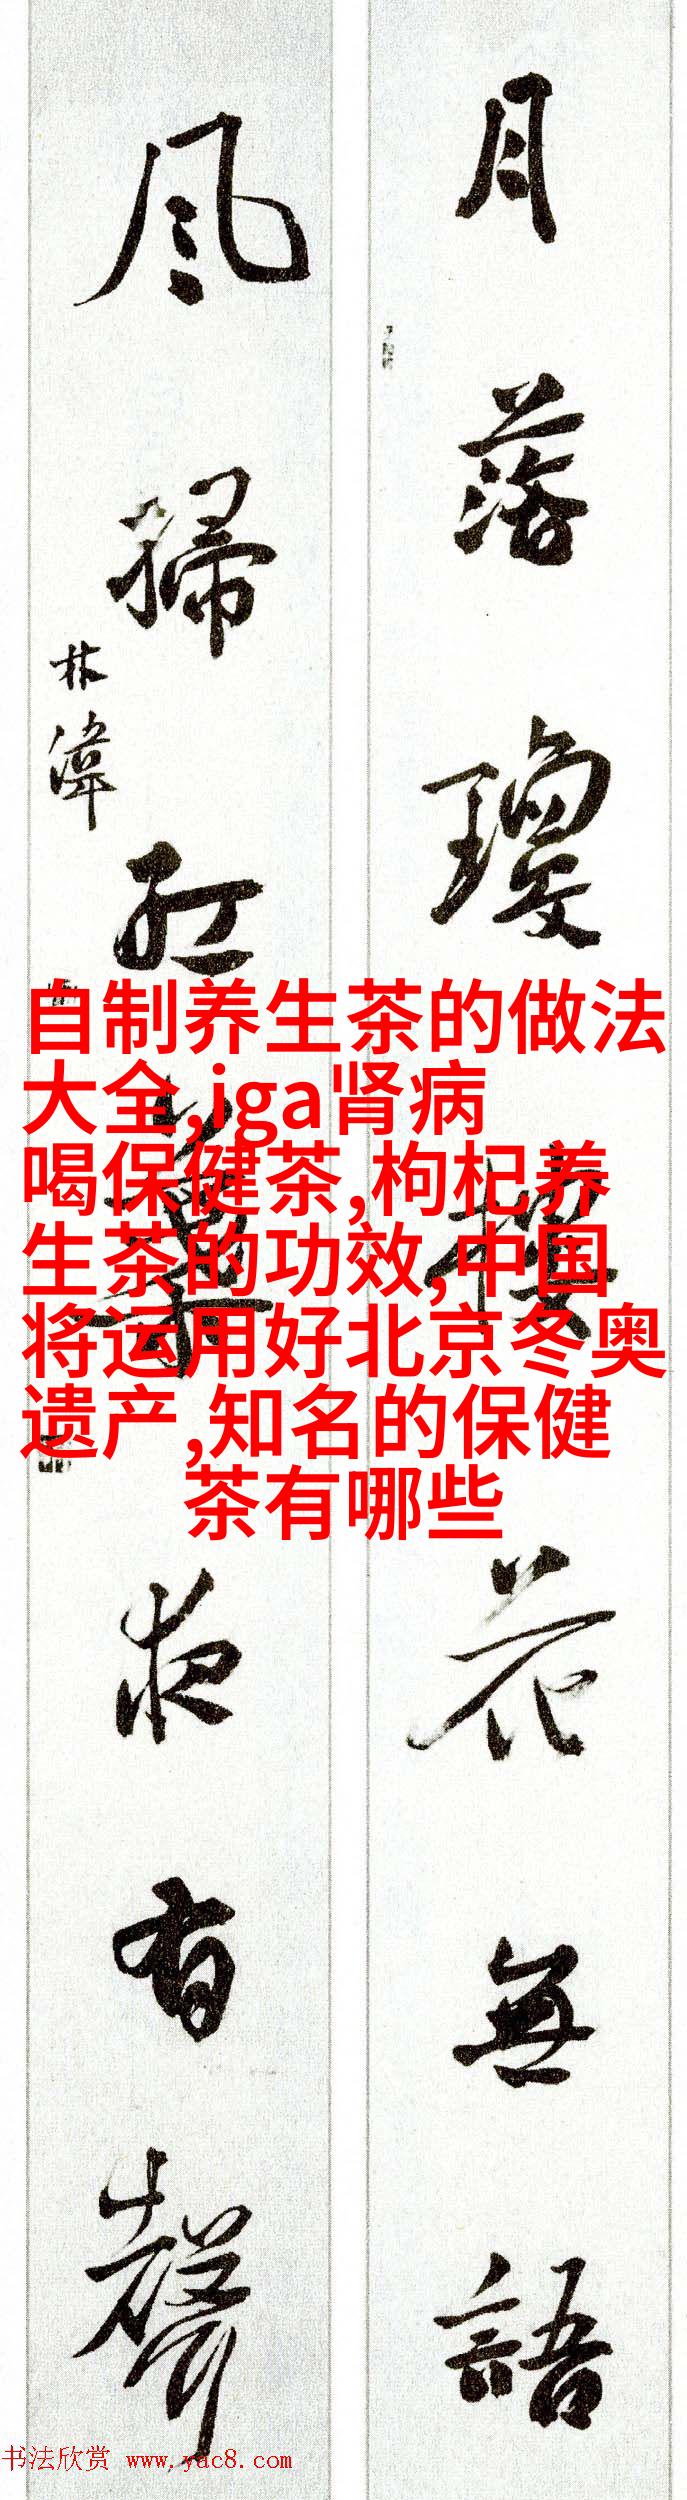 月落瓊樓花無語
風掃紅葉夜有聲
林偉
自制养生茶的做法
大全,iga肾病
喝保健茶,枸杞养
生茶的功效,中国
将运用好北京冬奥
遗产,知名的保健
茶有哪些
书法欣赏 www.yac8.com